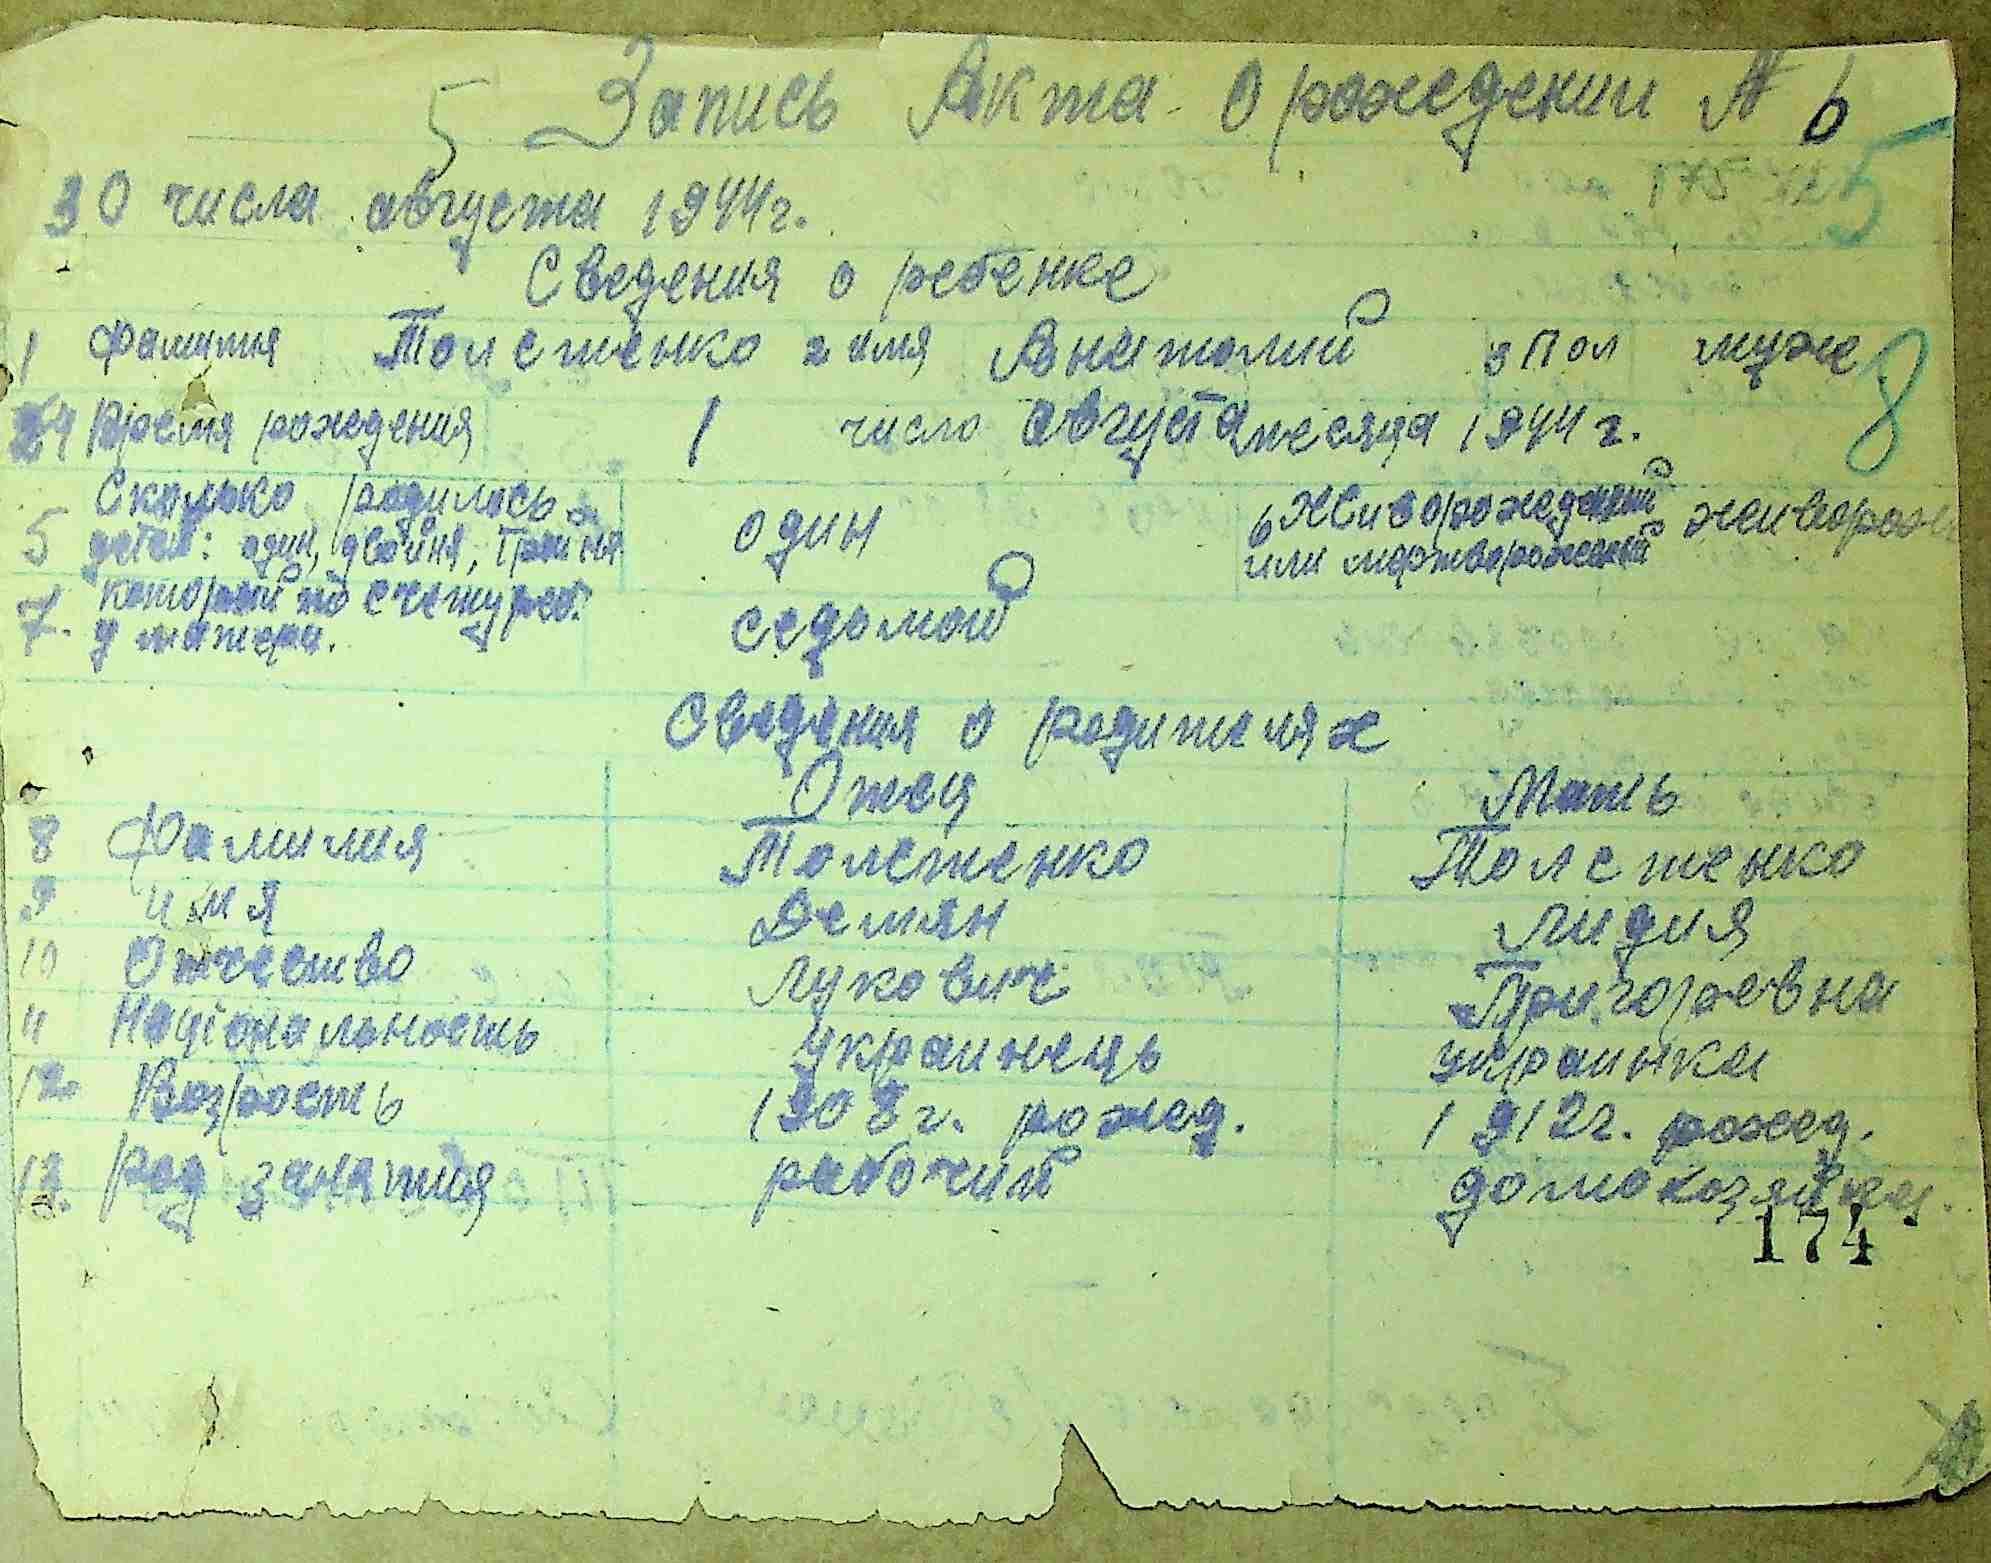 5 Запись Акта о рождении № 6
5
30 числа августа 1944г.
Сведения о ребенке
1 Фамилия Толстенко 2 имя Анатолий 3 Пол муж
8
4 Время рождения 1 число августа месяца 1944 г.
5 Сколько родилось детей: один, двойня, тройня один 6 Живорожденный или мертворожденый живорож
7. которой по счету реб. у матери. седьмой
Сведения о родителях
Отец Мать
8 Фамилия Толстенко Толстенко
9 имя Демян Лидия
10 Отчество Лукович Григорьевна
11 Національность украинець украинка
12 Возрость 1908г. рожед. 1912г. рожед.
13. род занятия рабочий домохозяйка.
174